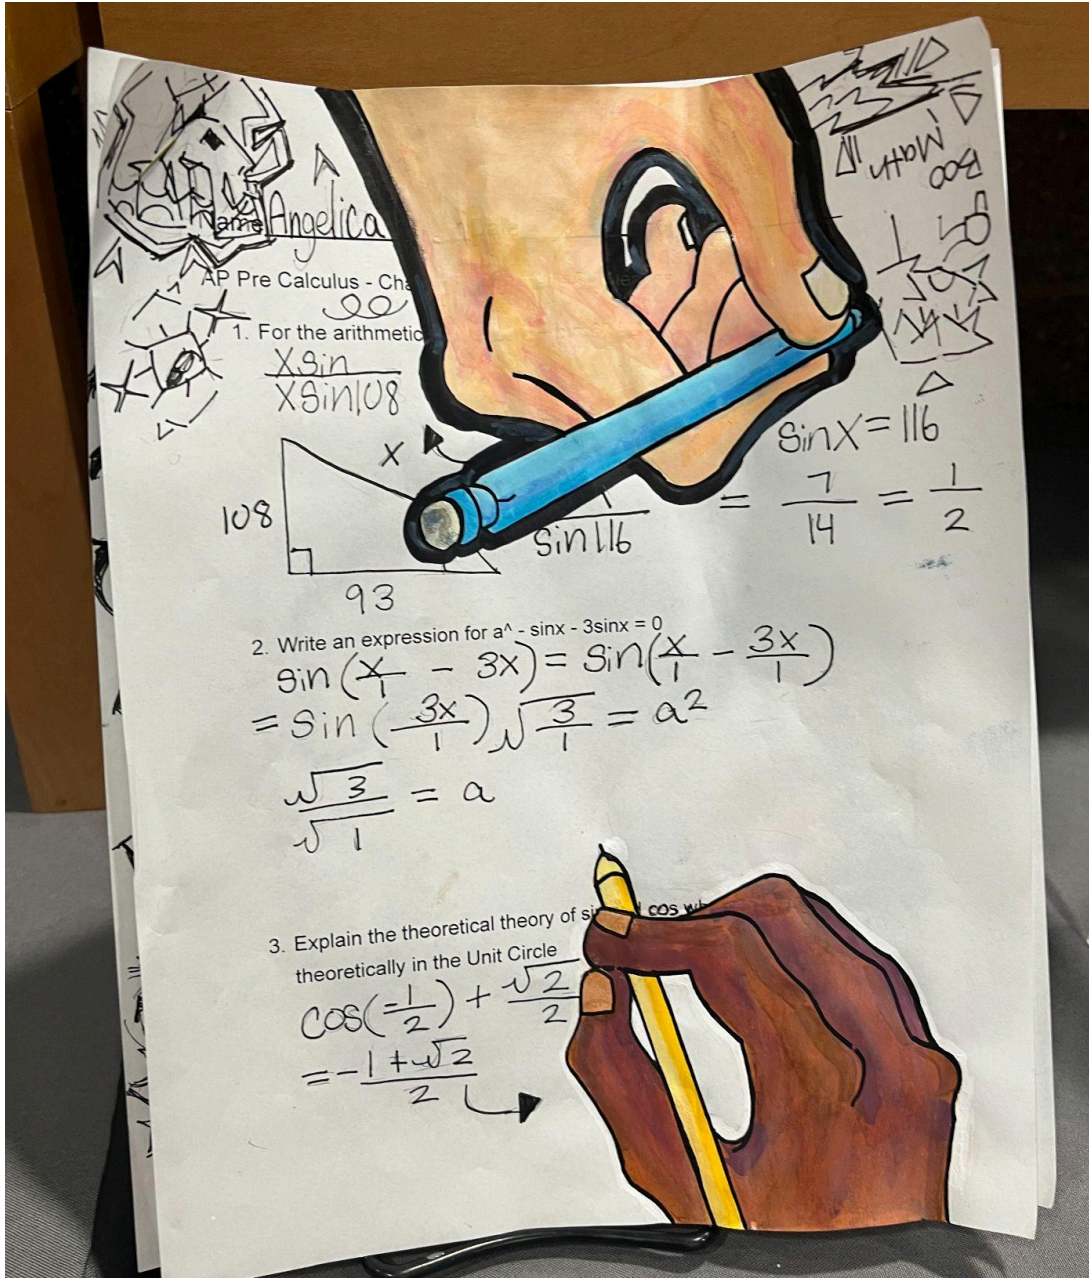 Name Angelica
Boo
Math
!!!
AP Pre Calculus - Cha
1. For the arithmetic
Xsin
Xsin108
sinx = 116
x
108
sin116
= 7/14 = 1/2
93
2. Write an expression for a^ - sinx - 3sinx = 0
sin(x/1 - 3x) = sin(x/1 - 3x/1)
= sin(3x/1)√3/1 = a²
√3/√1 = a
3. Explain the theoretical theory of si cos wh
theoretically in the Unit Circle
cos(-1/2) + √2/2
= -1+√2/2